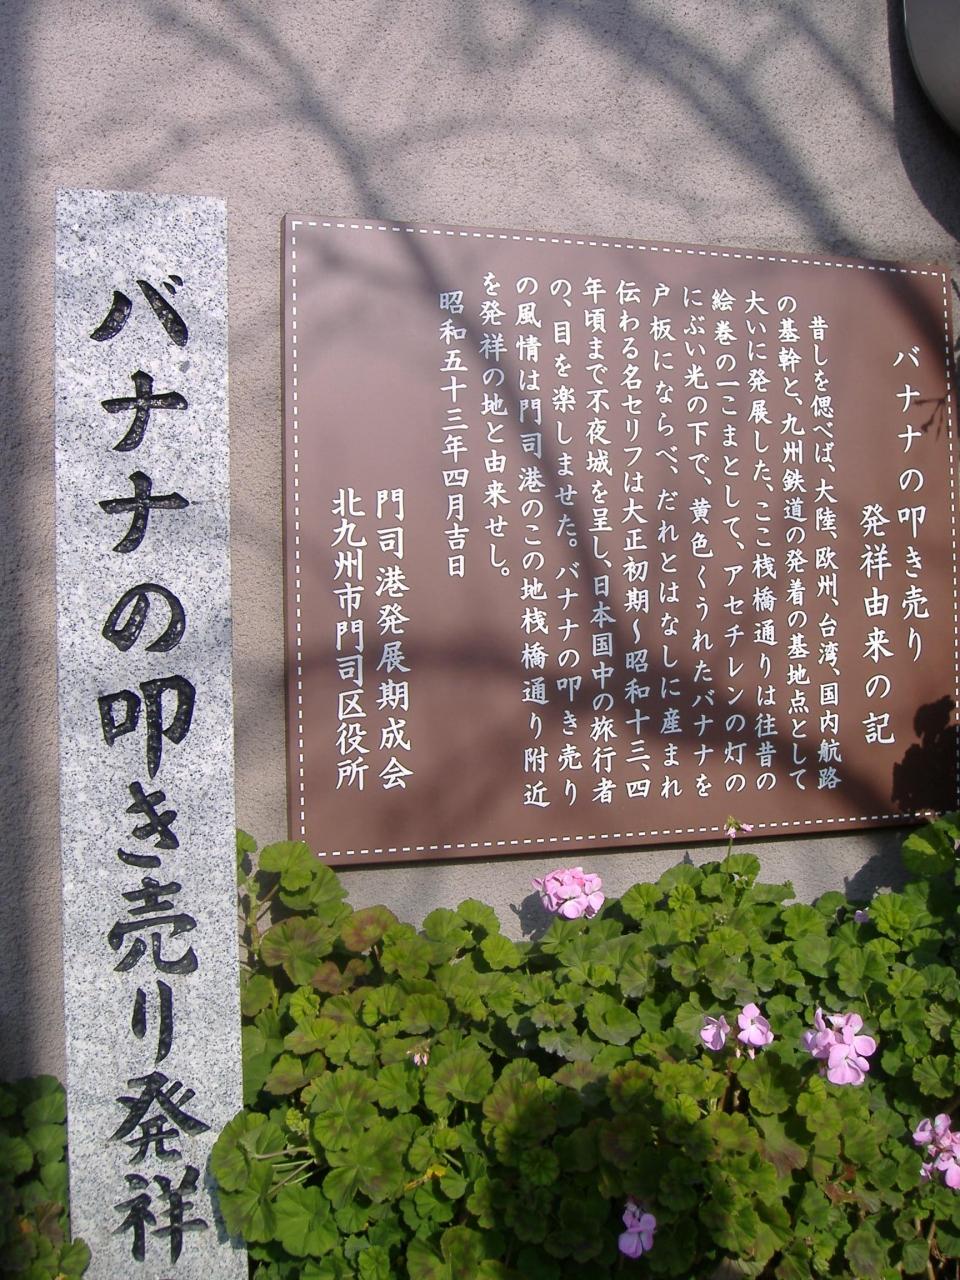 バナナの叩き売り
発祥由来の記
昔しを偲べば、大陸、欧州、台湾、国内航路
の基幹と、九州鉄道の発着の基地点として
大いに発展した、ここ桟橋通りは往昔の
絵巻の一こまとして、アセチレンの灯の
にぶい光の下で、黄色くうれたバナナを
戸板にならべ、だれとはなしに産まれ
伝わる名セリフは大正初期〜昭和十三、四
年頃まで不夜城を呈し、日本国中の旅行者
の、目を楽しませた。バナナの叩き売り
の風情は門司港のこの地桟橋通り附近
を発祥の地と由来せし。
昭和五十三年四月吉日
門司港発展期成会
北九州市門司区役所
バナナの叩き売り発祥